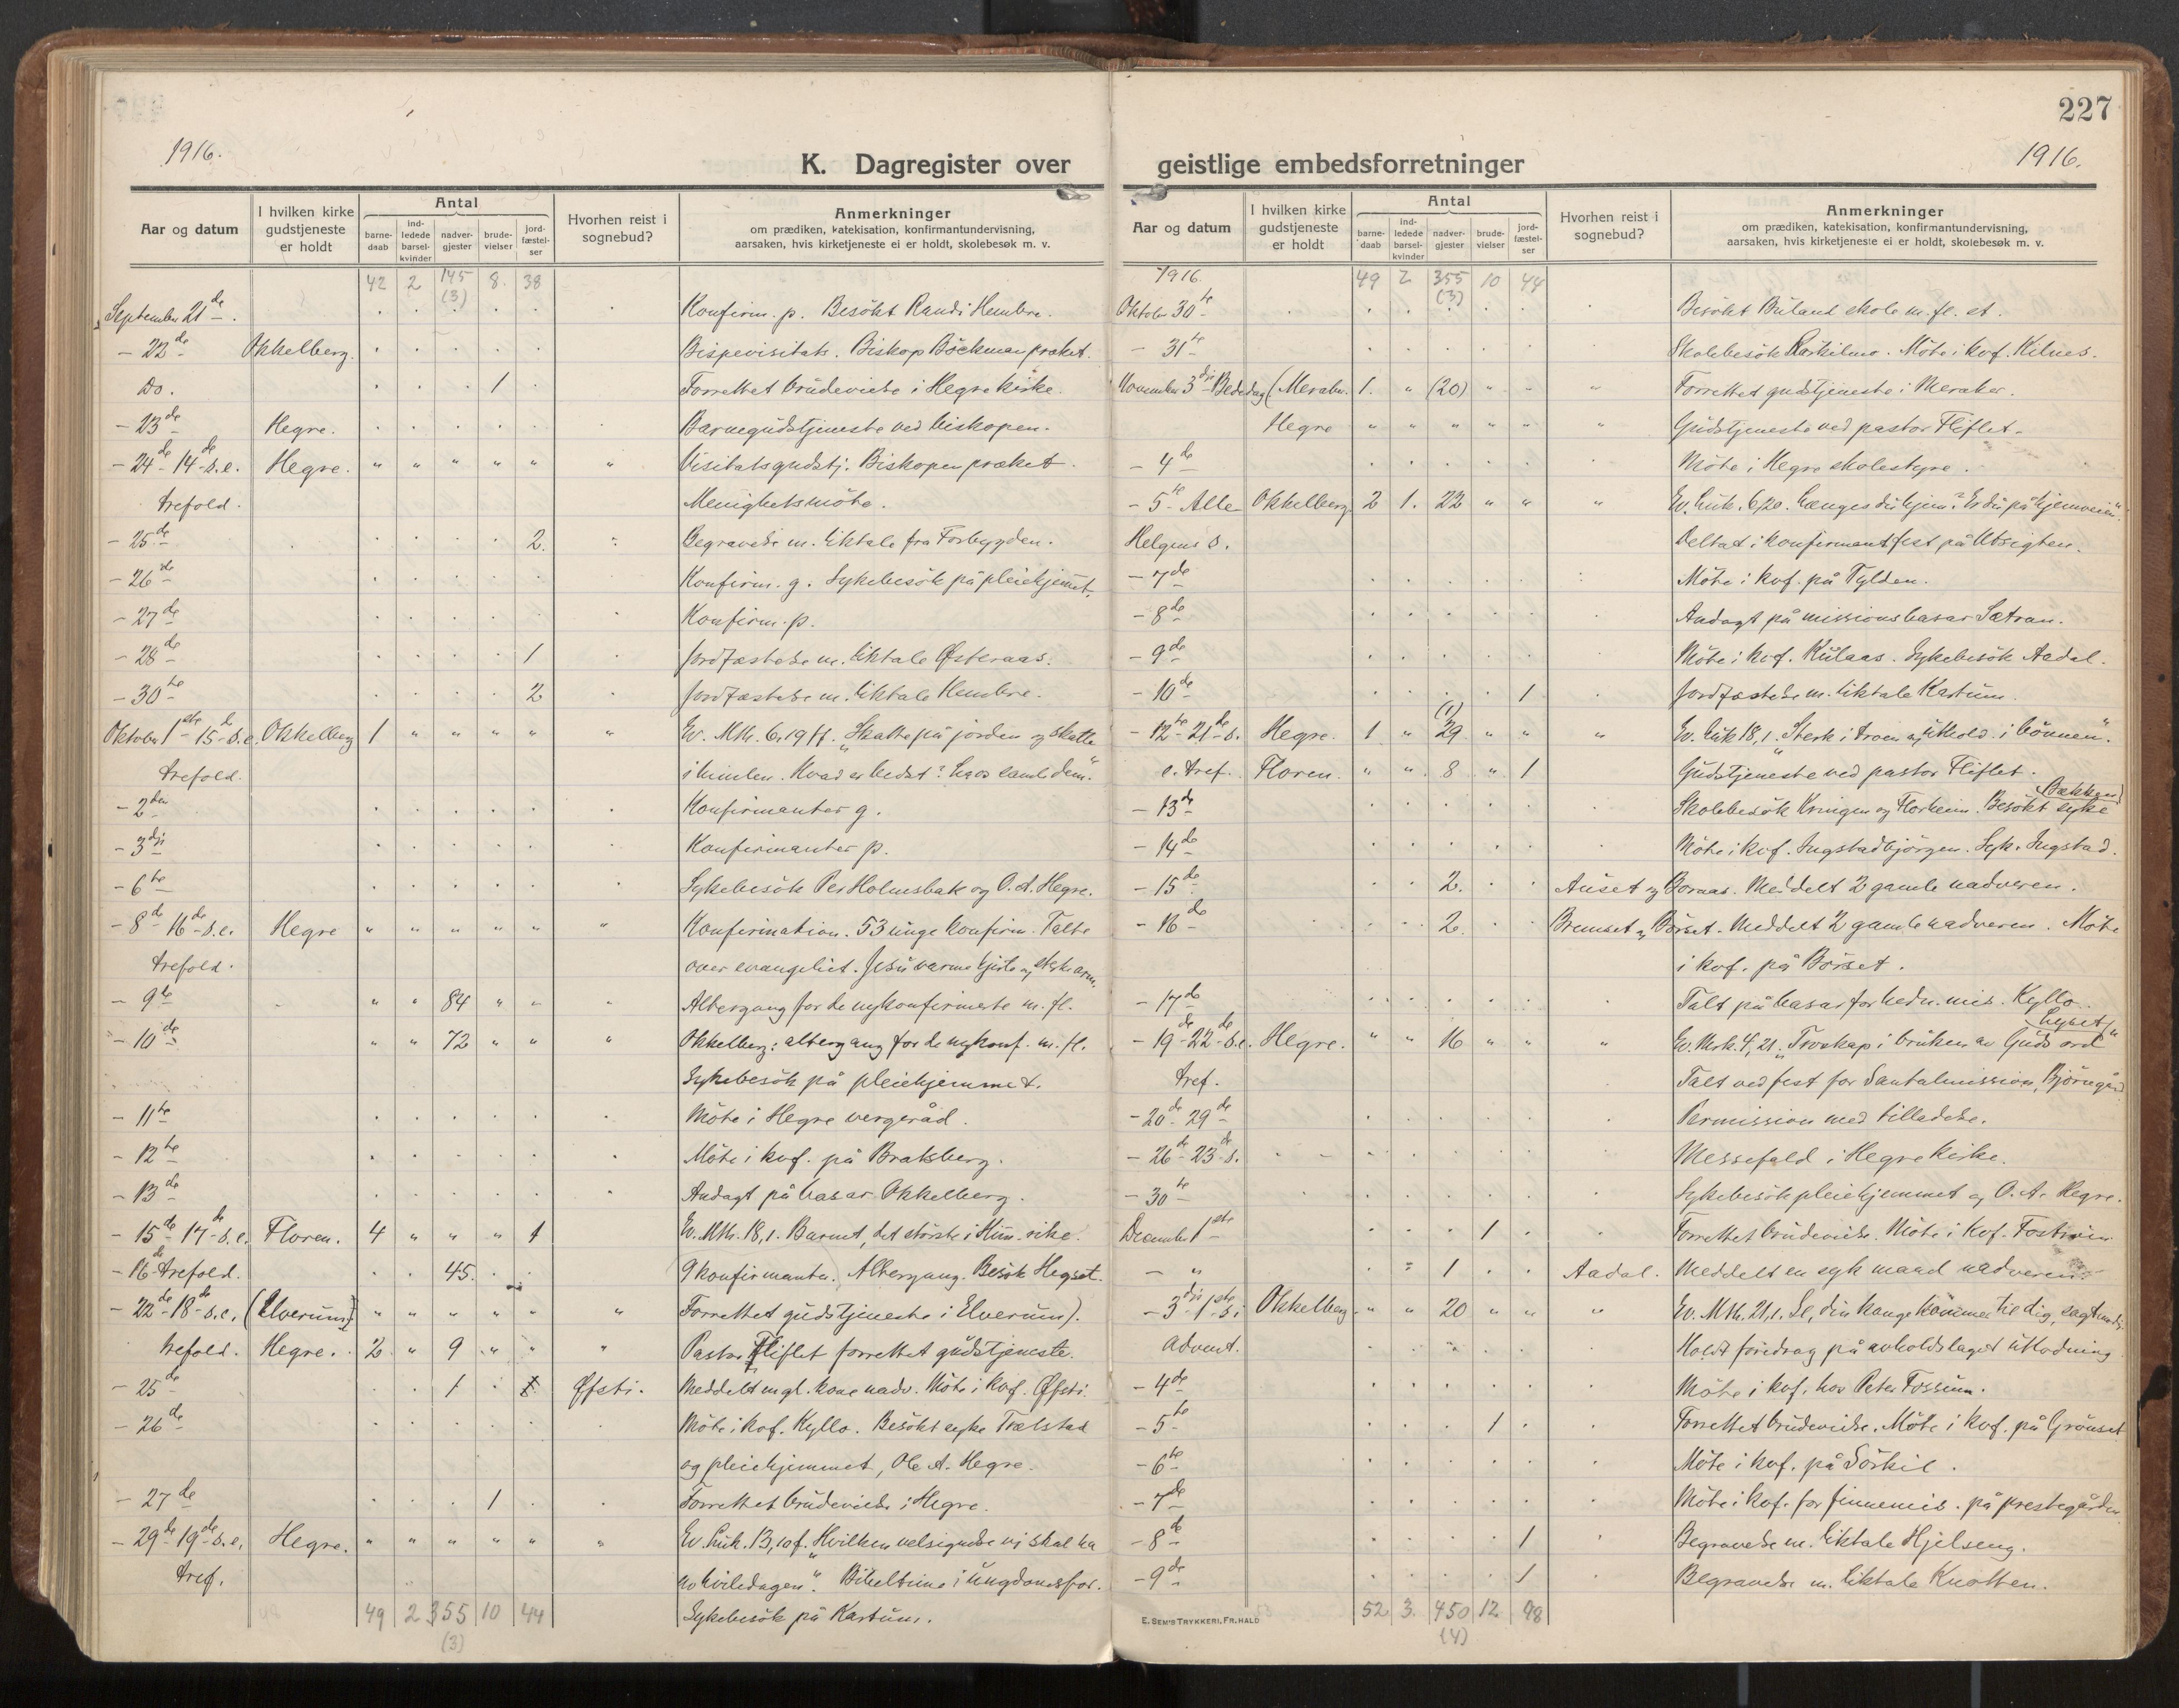 227
1916.
K. Dagregister over geistlige embedsforretninger
1916.
Aar og datum | I hvilken kirke gudstjeneste er holdt | Antal barnedaab | indledede barselkvinder | nadvergjester | brudevielser | jordfæstelser | Hvorhen reist i sognebud? | Anmerkninger om prædiken, katekisation, konfirmantundervisning, aarsaken, hvis kirketjeneste ei er holdt, skolebesøk m. v.
42 2 145 (3) 8. 38
September 21de. Konfirm. p. Besökt Randi Hembre.
- 22de Okkelberg. Bispevisitats. Biskop Böckman præket.
Do. 1 Forrettet brudevielse i Hegre kirke.
- 23de Hegre. Barnegudstjeneste ved biskopen.
- 24de 14de s.e. Hegre. " " " " " " Visitatsgudstj. Biskopen præket.
trefold. Menighetsmöte.
- 25de 2. Begravelse m. liktale fra Forbygden.
- 26de Konfirm. g. Sykebesök på pleiehjemmet.
- 27de Konfirm. p.
- 28de 1 Jordfæstelse m. liktale Østeraas.
- 30te 2 Jordfæstelse m. liktale Hembre.
Oktober 1ste 15de s.e. Okkelberg 1 " " " " " Ev. Mth. 6,19 ff. "Skatte på jorden og skatte
trefold. i himlen. Hvad er bedst? La os samle dem."
- 2den Konfirmanter g.
- 3dje Konfirmanter p.
- 6te Sykebesök Per Holmsbak og O. A. Hegre.
- 8de 16de s.e. Hegre " " " " " " Konfirmation. 53 unge konfirm. Talte
trefold. over evangeliet. Jesu varme hjerte og sterke arm.
- 9de " " 84 " " " Altergang for de nykonfirmerte m. fl.
- 10de " " 72 " " " Okkelberg: altergang for de nykonf. m. fl.
Sykebesök på pleiehjemmet.
- 11te Möte i Hegre vergeråd.
- 12te Möte i kvf. på Bratsberg.
- 13de Andagt på basar Okkelberg.
- 15de 17de s.e. Floren. 4 " " " 1 Ev. Mth. 18,1. Barnet, det störste i Him. rike.
- 16de trefold. 45. 9 konfirmanter. Altergang. Besök Hegset.
- 22de 18de s.e. (Elverum) " " " " " " Forrettet gudstjeneste i Elverum).
trefold. Hegre. 2 " 9 " " " Pastor Fliflet forrettet gudstjeneste.
- 25de 1 Øfsti. Meddelt en gl. kone nadv. Möte i kvf. Øfsti.
- 26de Möte i kvf. Kyllo. Besökt syke Trælstad
og pleiehjemmet, Ole A. Hegre.
- 27de 1 Forrettet brudevielse i Hegre.
- 29de 19de s.e. Hegre. " " " " " " Ev. Luk. 13,10 f. "Hvilken velsignelse vi skal ha
tref. av hviledagen". Bibeltime i ungdomsfor.
49 2 355 (3) 10 44 Sykebesök på Kartum.
Aar og datum | I hvilken kirke gudstjeneste er holdt | Antal barnedaab | indledede barselkvinder | nadvergjester | brudevielser | jordfæstelser | Hvorhen reist i sognebud? | Anmerkninger om prædiken, katekisation, konfirmantundervisning, aarsaken, hvis kirketjeneste ei er holdt, skolebesøk m. v.
1916. 49 2 355 (3) 10 44
Oktober 30te Besökt Buland skole m. fl. st.
- 31te Skolebesök Møte i kvf. Kilnes.
November 3dje Bededag (Meraker. 1. " (20) " " " Forrettet gudstjeneste i Meraker.
Hegre " " " " " " Gudstjeneste ved pastor Fliflet.
- 4de Möte i Hegre skolestyre.
- 5te Alle Okkelberg 2 1. 22 " " " Ev. Luk. 6,20. Længes du hjem? Er du på hjemveien".
Helgens s. Deltat i konfirmantfest på Utsigten.
- 7de Möte i kvf. på Tylden.
- 8de Andagt på missionsbasar Sætran.
- 9de Möte i kvf. Kulaas. Sykebesök Aadal.
- 10de 1 Jordfæstelse m. liktale Kartum.
- 12te 21de s. Hegre. 1 " (1) 29 " " " Ev. Luk 18,1. "Sterk i troen og uthold. i bönnen".
e. tref. Floren. " " 8 " 1 Gudstjeneste ved pastor Fliflet.
- 13de Skolebesök Kringen og Florheim. Besökt syke Bakken
- 14de Möte i kvf. Ingstadbjörgen. Syk. Ingstad.
- 15de 2. Auset og Boraas. Meddelt 2 gamle nadveren.
- 16de 2. Bremset og Börset. Meddelt 2 gamle nadveren. Möte
i kvf. på Börset.
- 17de Talt på basar for hedn. mis. Kyllo.
- 19de 22de s.e. Hegre. " " 16 " " " Ev. Mrk. 4,21. "Troskap i bruken av Guds ord" Lyset
tref. Talt ved fest for Santalmission, Björngård
- 20de 29de Permission med tilladelse.
- 26de 23de s. Messefald i Hegre kirke.
- 30te Sykebesök pleiehjemmet og O. A. Hegre.
December 1ste 1 Forrettet brudevielse. Möte i kvf.
- " 1 Aadal. Meddelt en syk mand nadveren.
- 3dje 1ste s. i Okkelberg " " 20 " " " Ev. Mth. 21,1. Se, din konge kommer til dig,
Advent. Holdt foredrag på avholdslaget utlodning
- 4de Möte i kvf. hos Peter Fossum.
- 5te 1 Forrettet brudevielse. Möte i kvf. på Grönset
- 6te Möte i kvf. på Sörkil.
- 7de Möte i kvf. for finnemis. på prestegården
- 8de 1 Begravelse m. liktale Hjelseng.
- 9de 1 Begravelse m. liktale Knotten.
E. SEM'S TRYKKERI, FR.HALD
52 3. 450 (4) 12 48